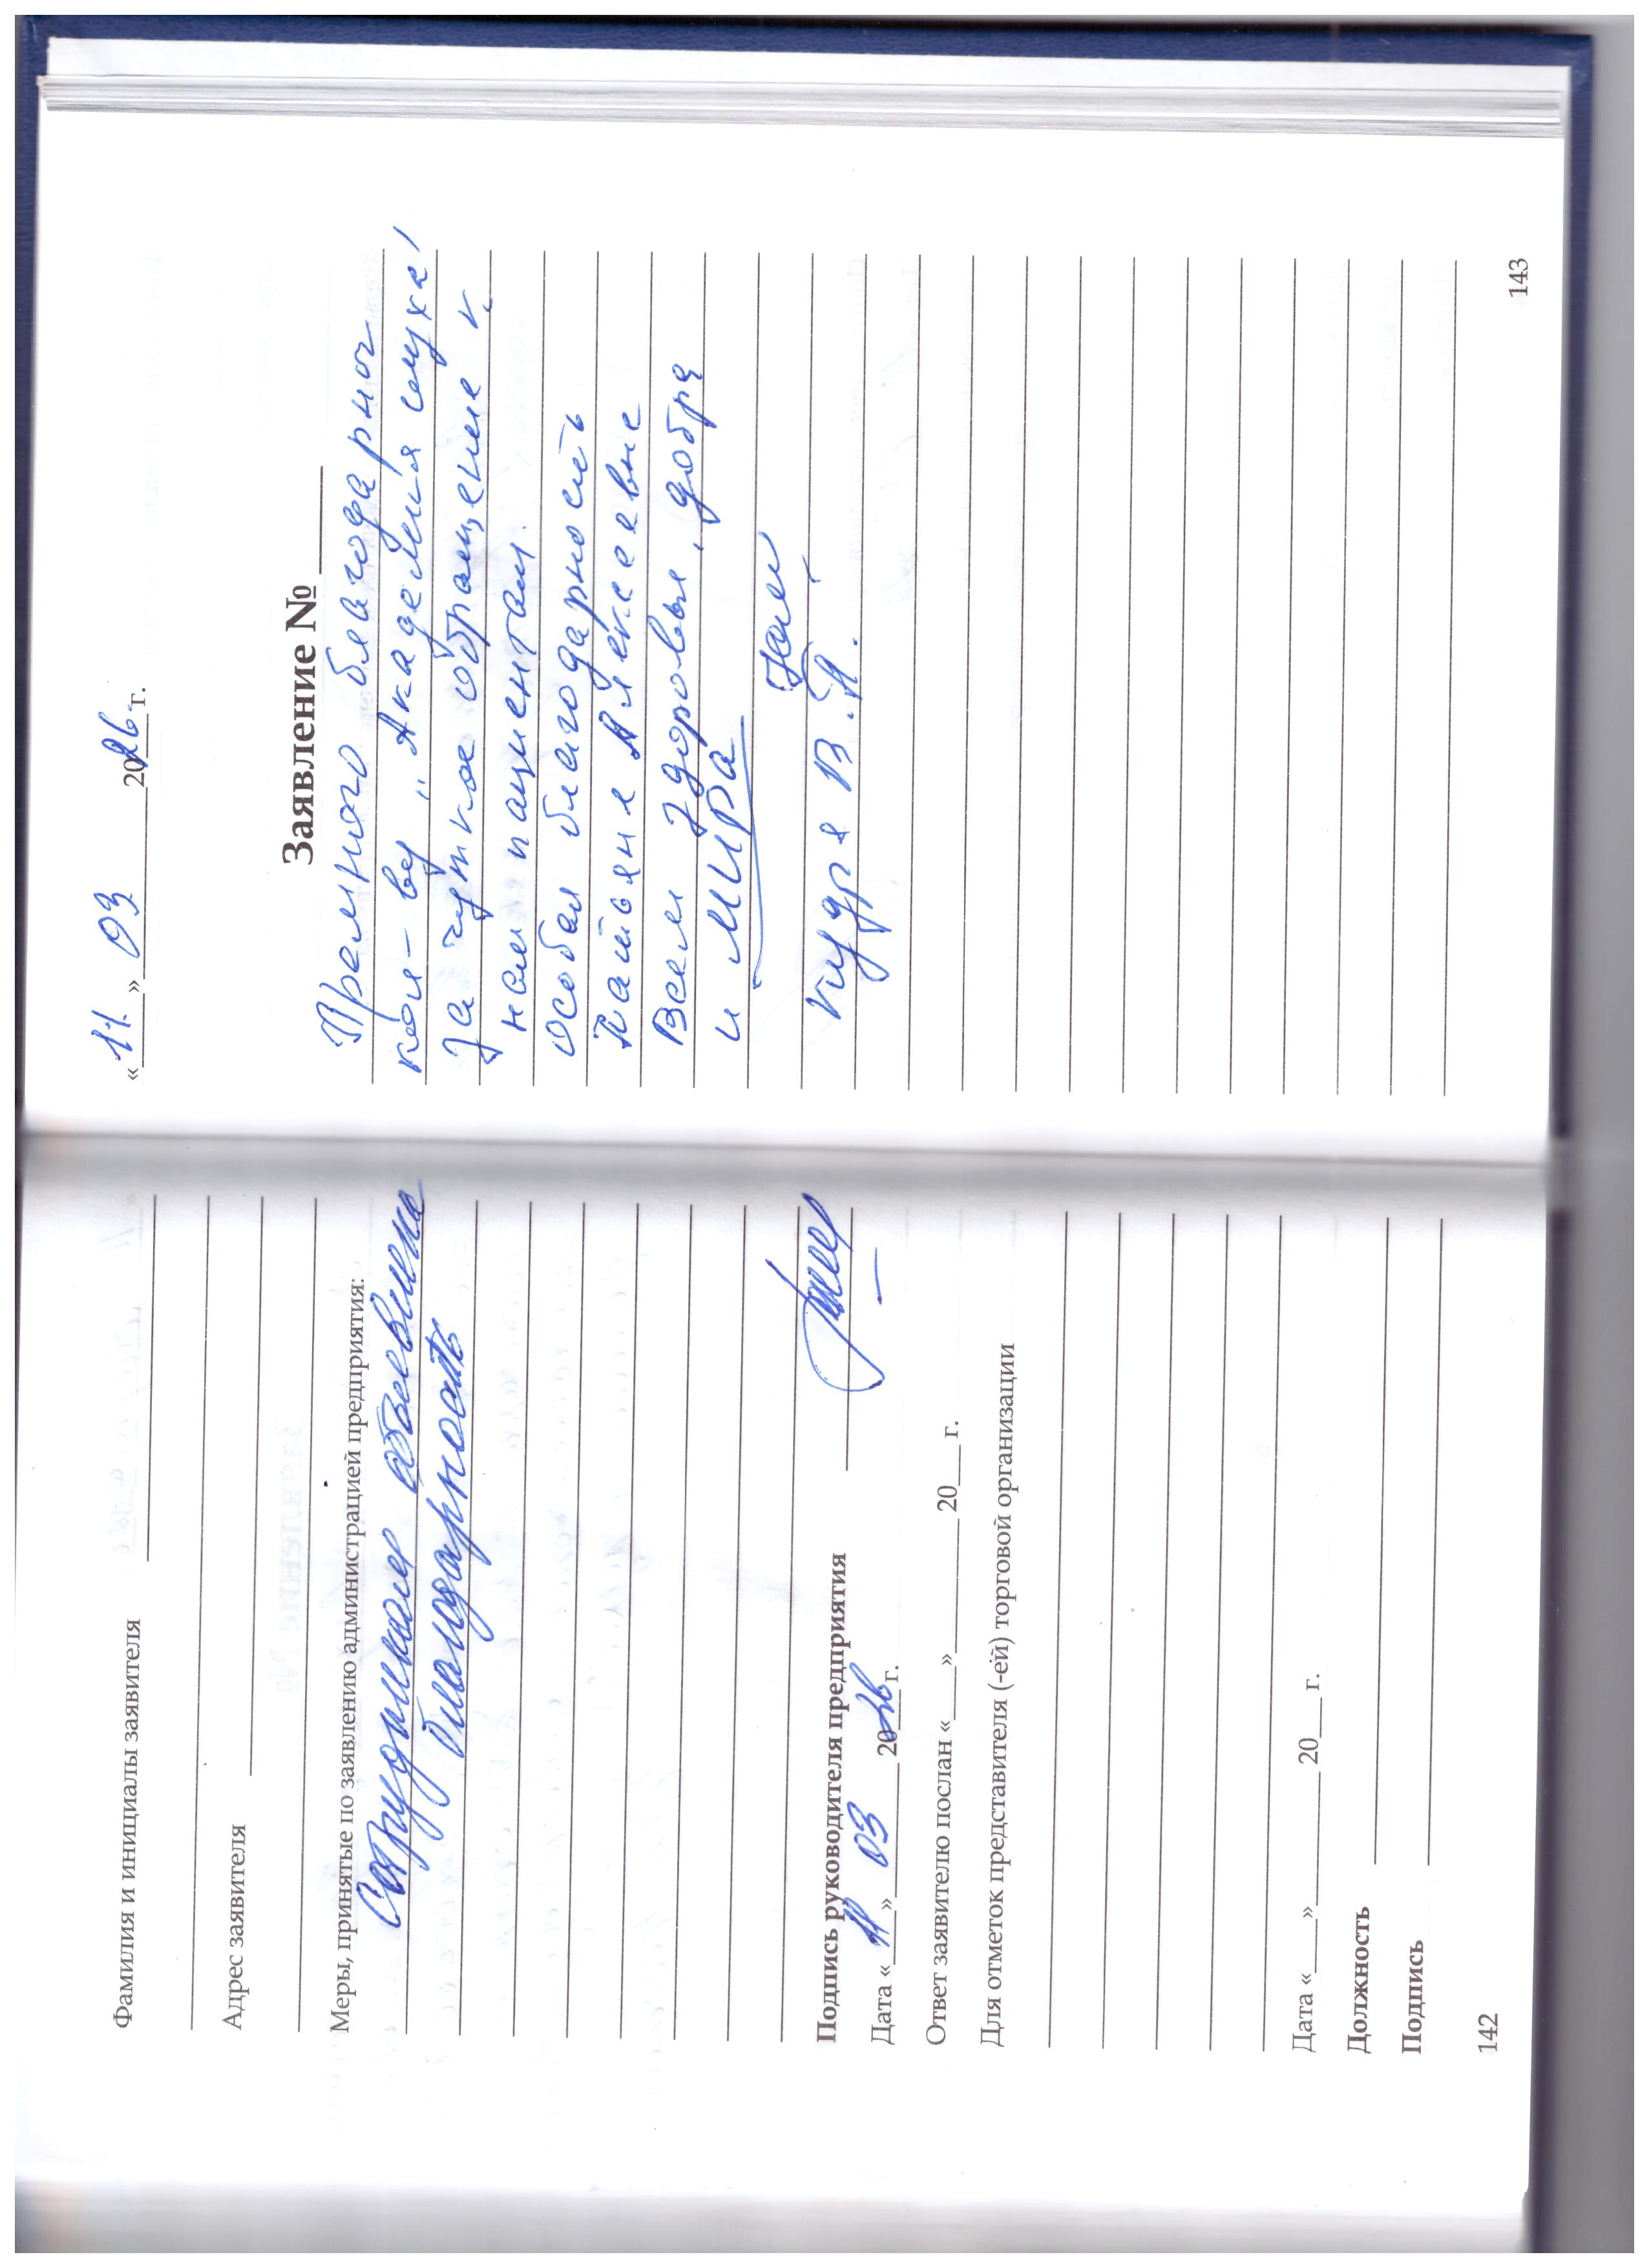 Фамилия и инициалы заявителя
Адрес заявителя
Меры, принятые по заявлению администрацией предприятия:
Сотрудникам объявлена
благодарность
Подпись руководителя предприятия
Дата «11» 03 2026 г.
Ответ заявителю послан «___» 20___ г.
Для отметок представителя (-ей) торговой организации
Дата «___» 20___ г.
Должность
Подпись
142
«11» 03 2026 г.
Заявление №
Премного благодарног
кол-ву "Академия слуха"
за чуткое обращение к
нам пациентам.
Особая благодарность
Татьяне Алексеевне
Всем здоровья, добра
и МИРА
В. А.
143